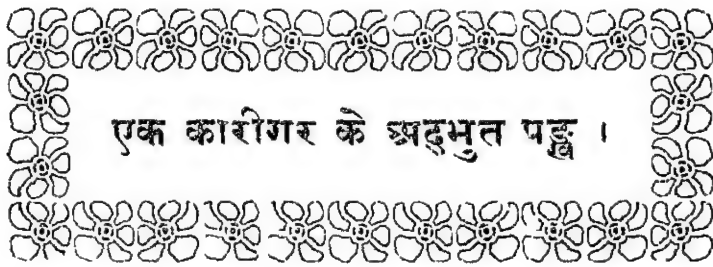 एक कारीगर के अद्भुत पङ्ख ।